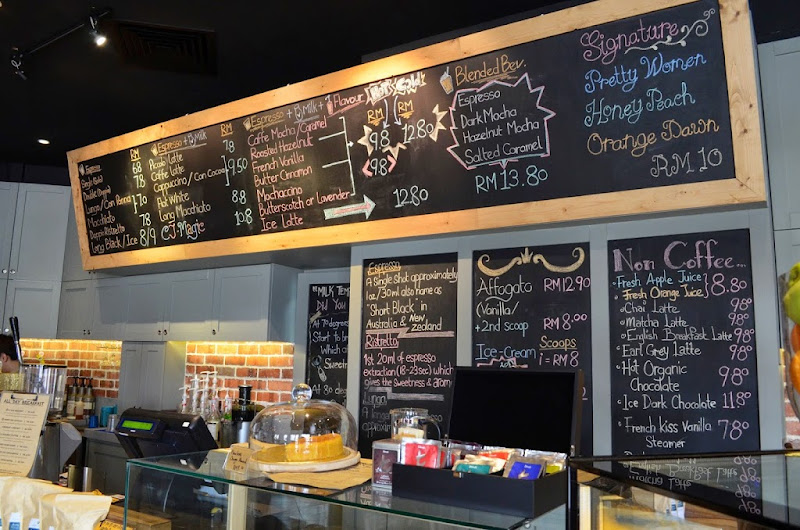 Espresso RM
Single Shot 6.8
Double Doppio 7.8
Lungo/Con Panna 7.0
Macchiato
Doppio Ristretto 7.8
Long Black/Ice 8/9
Espresso + Milk RM
Piccolo Latte 7.8
Caffe Latte
Cappuccino/Con Cocoa 9.50
Flat White
Long Macchiato 8.8
CJ Magic 10.8
Espresso + Milk + Flavour Hot & Cold
RM RM
Caffe Mocha/Caramel
Roasted Hazelnut 9.8 12.80
French Vanilla
Butter Cinnamon 9.8
Mochaccino
Butterscotch or Lavender
Ice Latte 12.80
Blended Bev.
Espresso
Dark Mocha
Hazelnut Mocha
Salted Caramel
RM 13.80
Signature
Pretty Women
Honey Peach
Orange Dawn
RM 10
"Milk
Did You
At 70 degrees
Start to
Which
Espresso
A Single Shot approximately
1oz/30ml also name as
"Short Black" in
Australia & New
Zealand
Ristretto
1st 20ml of espresso
extraction (18-23sec) which
gives the sweetness & aroma
Lungo
A longer
espresso
Affogato RM12.90
(Vanilla/
+2nd scoop RM 8.00
Ice-Cream Scoops
1 = RM 8
Non Coffee...
Fresh Apple Juice
Fresh Orange Juice 8.80
Chai Latte 9.80
Matcha Latte 9.80
English Breakfast Latte 9.80
Earl Grey Latte 9.80
Hot Organic
Chocolate 9.80
Ice Dark Chocolate 11.80
French Kiss Vanilla
Steamer 7.80
All Day Breakfast